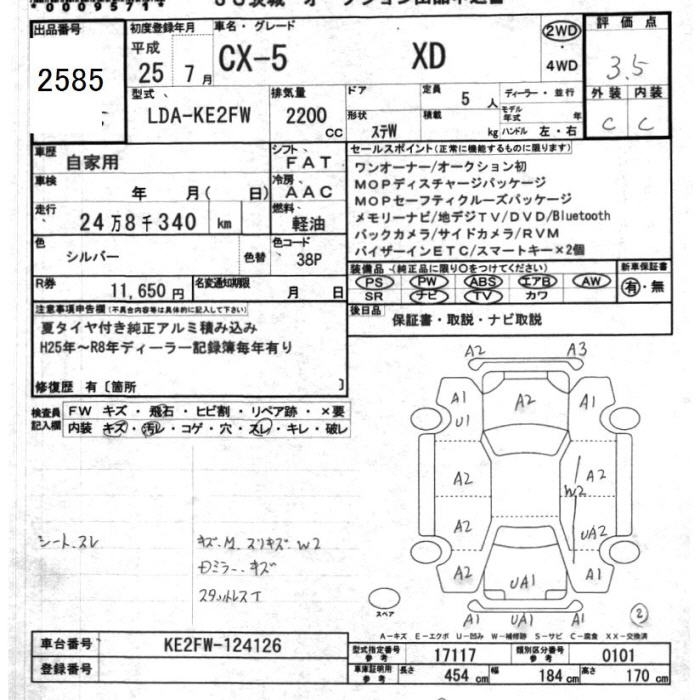 出品番号 初度登録年月 車名・グレード 評価点
平成 25年 7月 CX-5 XD 2WD 4WD 3.5
2585
外装 内装
C C
型式 排気量 ドア 定員 ディーラー・並行
LDA-KE2FW 2200 CC 5人
形状 ステW 積載 kg モデル年式 年 ハンドル 左・右
車歴 自家用 シフト FAT
車検 年 月( 日) 冷房 AAC
走行 24万8千340 km 燃料 軽油
色 シルバー 色替 色コード 38P
R券 11,650円 名変通知期限 月 日
セールスポイント(正常に機能するものに限ります)
ワンオーナー/オークション初
MOPディスチャージパッケージ
MOPセーフティクルーズパッケージ
メモリーナビ/地デジTV/DVD/Bluetooth
バックカメラ/サイドカメラ/RVM
バイザーインETC/スマートキー×2個
装備品(純正品に限り○をつけてください) 新車保証書
PS PW ABS エアB AW 有・無
SR ナビ TV カワ
後日品 保証書・取説・ナビ取説
注意事項申告欄(不具合内容等は具体的に記入して下さい)
夏タイヤ付き純正アルミ積み込み
H25年~R8年ディーラー記録簿毎年有り
修復歴 有〔箇所 〕
検査員記入欄
FW キズ・飛石・ヒビ割・リペア跡・×要
内装 キズ・汚レ・コゲ・穴・スレ・キレ・破レ
シート スレ
キズ・M スリキズ W2
Dミラー キズ
スタットレスT
A2 A3
A1 A2 A1
U1
A2 A2
W2
A2 UA2
A2 UA1 A1
A1 UA1 A1
スペア ②
A-キズ E-エクボ U-凹み W-補修跡 S-サビ C-腐食 XX-交換済
車台番号 KE2FW-124126
登録番号
型式指定番号 参考 17117 類別区分番号 参考 0101
車庫証明用 参考 長さ 454 cm 幅 184 cm 高さ 170 cm